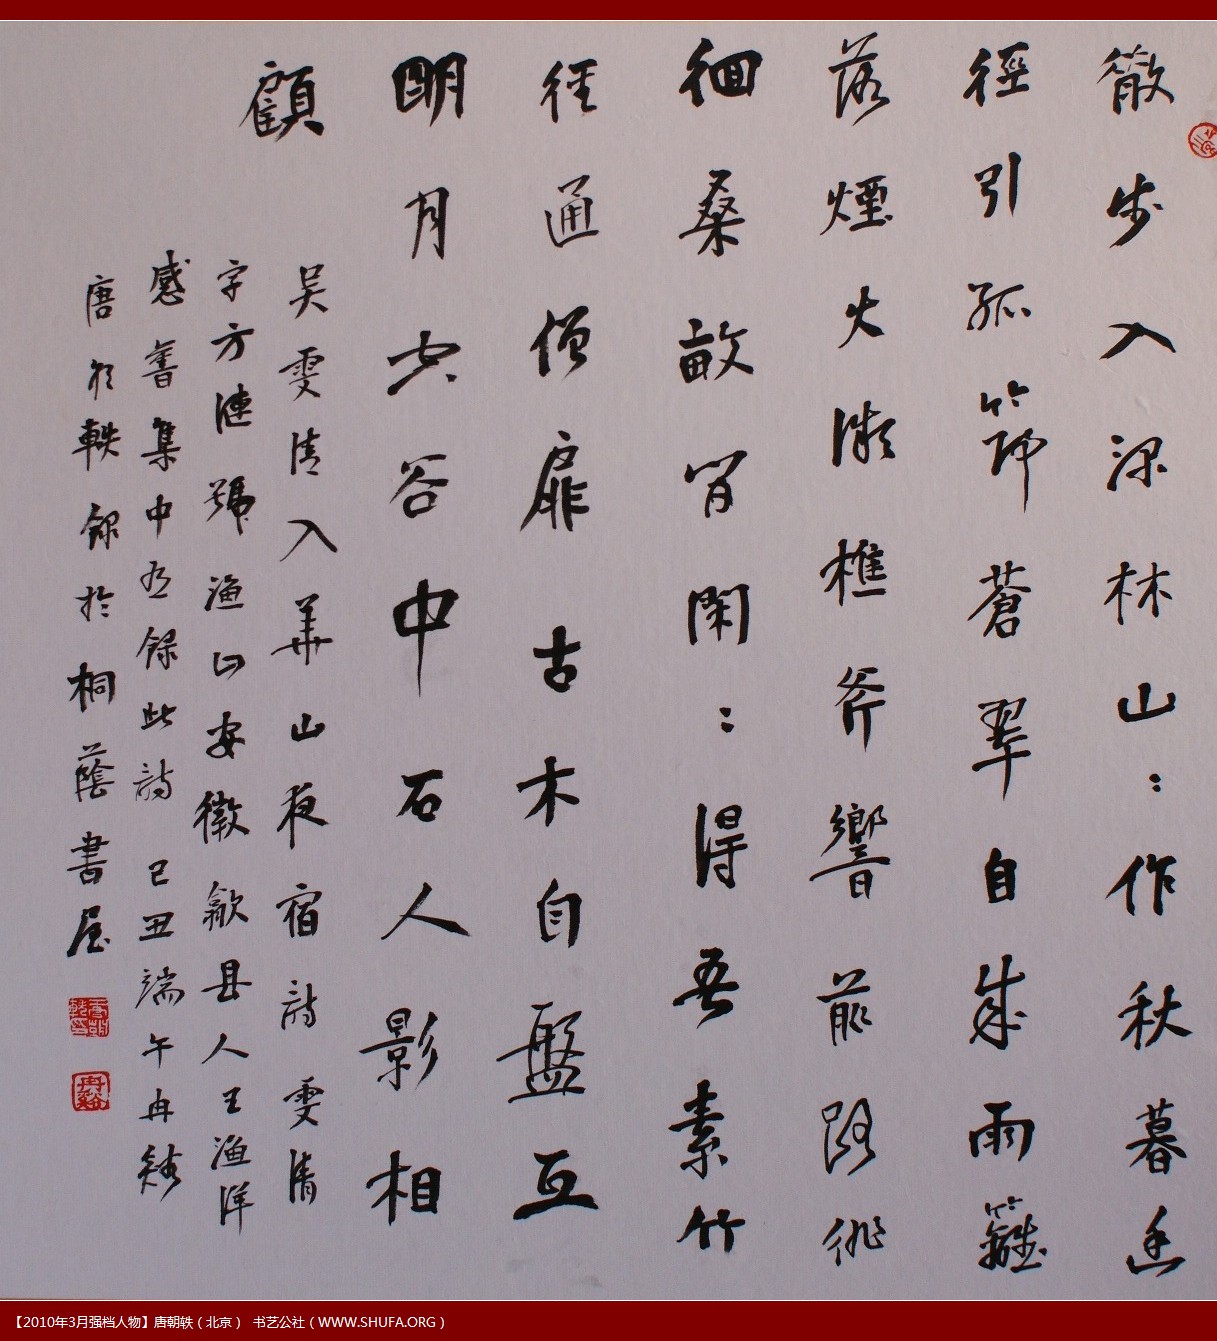 散步入深林山〻作秋暮幽
徑引孤筇蒼翠自成雨籬
落煙火微樵斧響前路徘
徊桑畝間閑〻得吾素竹
徑通僧扉古木自盤互
明月空谷中石人影相
顧
吳雯清入華山夜宿詩雯清
字方漣號漁山安徽歙县人王漁洋
感舊集中為錄此詩己丑端午冉谿
唐朝軼錄於桐蔭書屋
【2010年3月强档人物】唐朝轶（北京） 书艺公社（WWW.SHUFA.ORG）